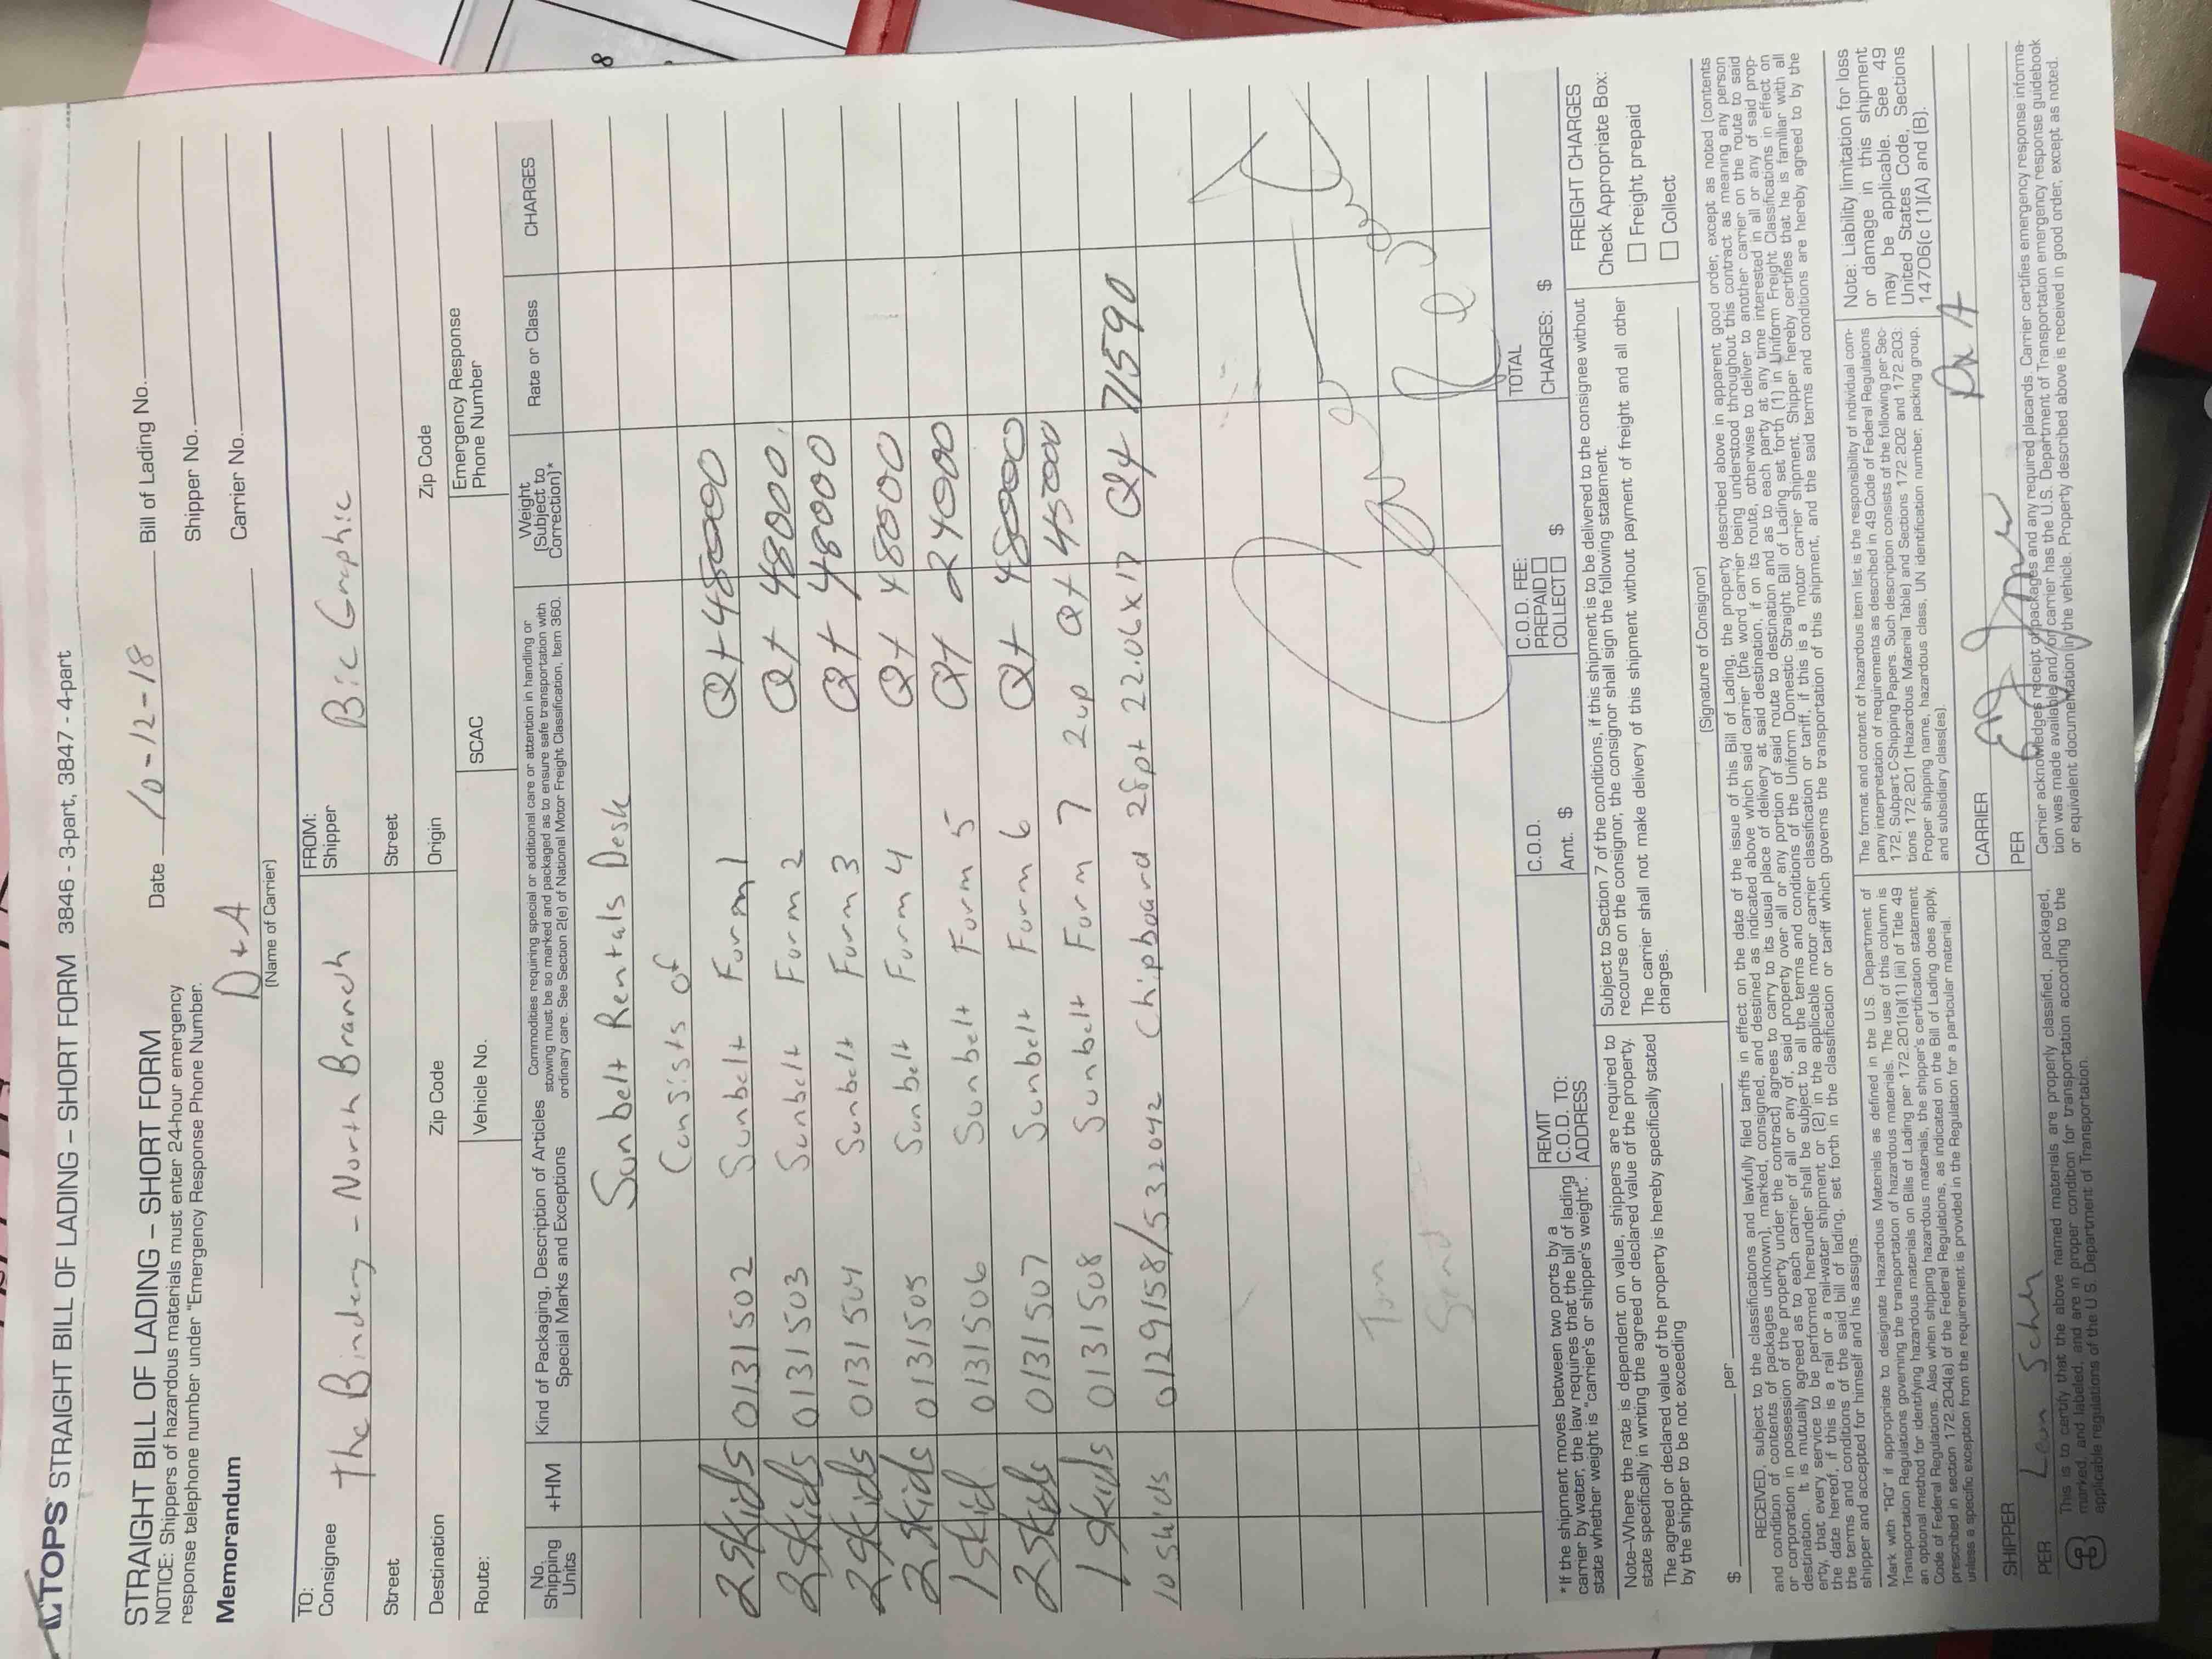 TOPS STRAIGHT BILL OF LADING – SHORT FORM 3846 - 3-part, 3847 - 4-part
STRAIGHT BILL OF LADING – SHORT FORM
NOTICE: Shippers of hazardous materials must enter 24-hour emergency
response telephone number under "Emergency Response Phone Number.
Memorandum
D+A
(Name of Carrier)
Date 10-12-18
Bill of Lading No.
Shipper No.
Carrier No.
TO:
Consignee The Bindery - North Branch
Street
Destination Zip Code
FROM:
Shipper Bic Graphic
Street
Origin Zip Code
Route: Vehicle No. SCAC Emergency Response
Phone Number
No.
Shipping
Units
+HM
Kind of Packaging, Description of Articles
Special Marks and Exceptions
Commodities requiring special or additional care or attention in handling or
stowing must be so marked and packaged as to ensure safe transportation with
ordinary care. See Section 2(e) of National Motor Freight Classification, Item 360.
Weight
(Subject to
Correction)*
Rate or Class
CHARGES
Sunbelt Rentals Desk
Consists of
2 Skids 0131502 Sunbelt Form 1 Qt 48000
2 Skids 0131503 Sunbelt Form 2 Qt 48000
2 Skids 0131504 Sunbelt Form 3 Qt 48000
2 Skids 0131505 Sunbelt Form 4 Qt 48000
1 Skid 0131506 Sunbelt Form 5 Qt 24000
2 Skids 0131507 Sunbelt Form 6 Qt 48000
1 Skids 0131508 Sunbelt Form 7 2up Qt 45000
10 Skids 0129158/532042 Chipboard 28pt 22.06x17 Qty 71590
*If the shipment moves between two ports by a
carrier by water, the law requires that the bill of lading
state whether weight is "carrier's or shipper's weight".
REMIT
C.O.D. TO:
ADDRESS
C.O.D.
Amt. $
C.O.D. FEE:
PREPAID
COLLECT $
TOTAL
CHARGES: $
Note–Where the rate is dependent on value, shippers are required to
state specifically in writing the agreed or declared value of the property.
The agreed or declared value of the property is hereby specifically stated
by the shipper to be not exceeding
$ per
Subject to Section 7 of the conditions, if this shipment is to be delivered to the consignee without
recourse on the consignor, the consignor shall sign the following statement.
The carrier shall not make delivery of this shipment without payment of freight and all other
charges.
(Signature of Consignor)
FREIGHT CHARGES
Check Appropriate Box:
Freight prepaid
Collect
RECEIVED, subject to the classifications and lawfully filed tariffs in effect on the date of the issue of this Bill of Lading, the property described above in apparent good order, except as noted (contents
and condition of contents of packages unknown), marked, consigned, and destined as indicated above which said carrier (the word carrier being understood throughout this contract as meaning any person
or corporation in possession of the property under the contract) agrees to carry to its usual place of delivery at said destination, if on its route, otherwise to deliver to another carrier on the route to said
destination. It is mutually agreed as to each carrier of all or any of, said property over all or any portion of said route to destination and as to each party at any time interested in all or any of said prop-
erty, that every service to be performed hereunder shall be subject to all the terms and conditions of the Uniform Domestic Straight Bill of Lading set forth (1) in Uniform Freight Classifications in effect on
the date hereof, if this is a rail or a rail-water shipment or (2) in the applicable motor carrier classification or tariff, if this is a motor carrier shipment. Shipper hereby certifies that he is familiar with all
the terms and conditions of the said bill of lading, set forth in the classification or tariff which governs the transportation of this shipment, and the said terms and conditions are hereby agreed to by the
shipper and accepted for himself and his assigns.
Mark with "RQ" if appropriate to designate Hazardous Materials as defined in the U.S. Department of
Transportation Regulations governing the transportation of hazardous materials. The use of this column is
an optional method for identifying hazardous materials on Bills of Lading per 172.201(a)(1) (iii) of Title 49
Code of Federal Regulations. Also when shipping hazardous materials, the shipper's certification statement
prescribed in section 172.204(a) of the Federal Regulations, as indicated on the Bill of Lading does apply,
unless a specific exception from the requirement is provided in the Regulation for a particular material.
The format and content of hazardous item list is the responsibility of individual com-
pany interpretation of requirements as described in 49 Code of Federal Regulations
172, Subpart C-Shipping Papers. Such description consists of the following per Sec-
tions 172.201 (Hazardous Material Table) and Sections 172.202 and 172.203:
Proper shipping name, hazardous class, UN identification number, packing group,
and subsidiary class(es).
Note: Liability limitation for loss
or damage in this shipment
may be applicable. See 49
United States Code, Sections
14706(c (1)(A) and (B).
SHIPPER
PER
This is to certify that the above named materials are properly classified, packaged,
marked, and labeled, and are in proper condition for transportation according to the
applicable regulations of the U.S. Department of Transportation.
CARRIER
PER
Carrier acknowledges receipt of packages and any required placards. Carrier certifies emergency response informa-
tion was made available and/or carrier has the U.S. Department of Transportation emergency response guidebook
or equivalent documentation in the vehicle. Property described above is received in good order, except as noted.